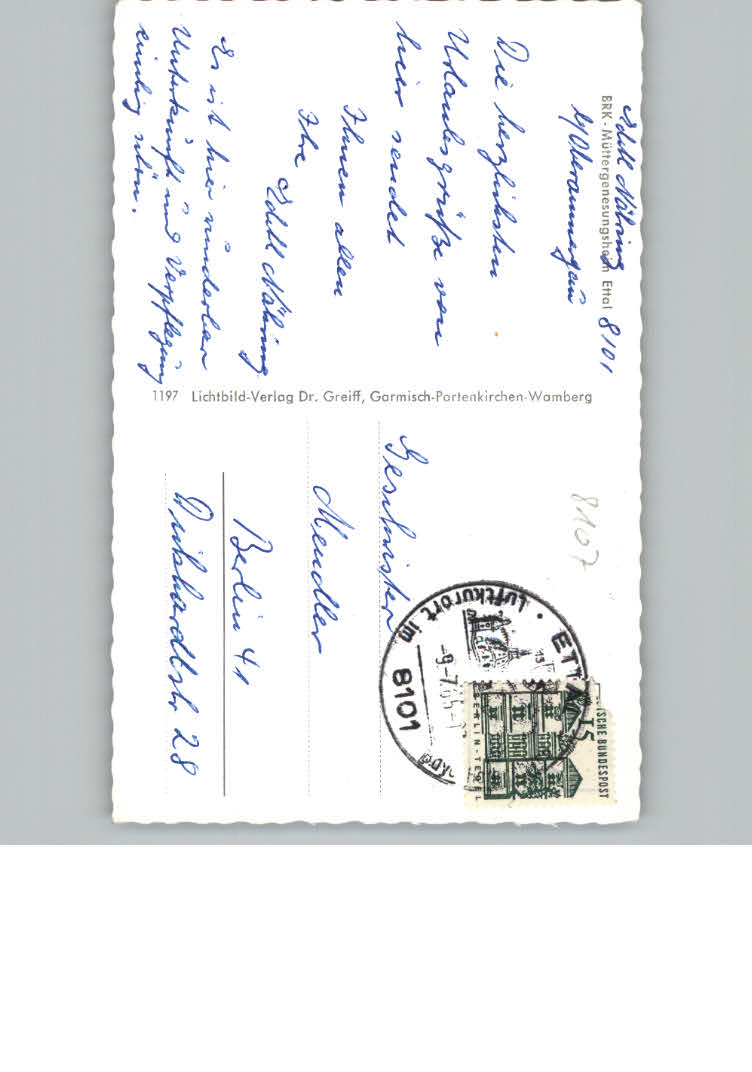 Edith Nähring
BRK - Müttergenesungsheim Ettal 8101
b/Oberammergau
Die herzlichsten
Urlaubsgrüße von
hier sendet
Ihnen allen
Ihre
Edith Nähring
Es ist hier wunderbar
Unterkunft und Verpflegung
einzig schön.
1197 Lichtbild-Verlag Dr. Greiff, Garmisch-Partenkirchen-Wamberg
8107
Geschwister
Mendler
Berlin 41
Dickhardtstr 28
ETTAL
Luftkurort im
8101
-9.-7.65
15
SCHE BUNDESPOST
BERLIN-TEGEL